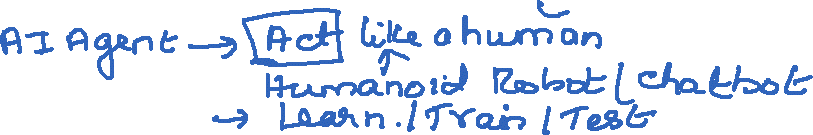 AI Agent → Act like a human
↑
Humanoid Robot / chatbot
→ Learn. / Train / Test